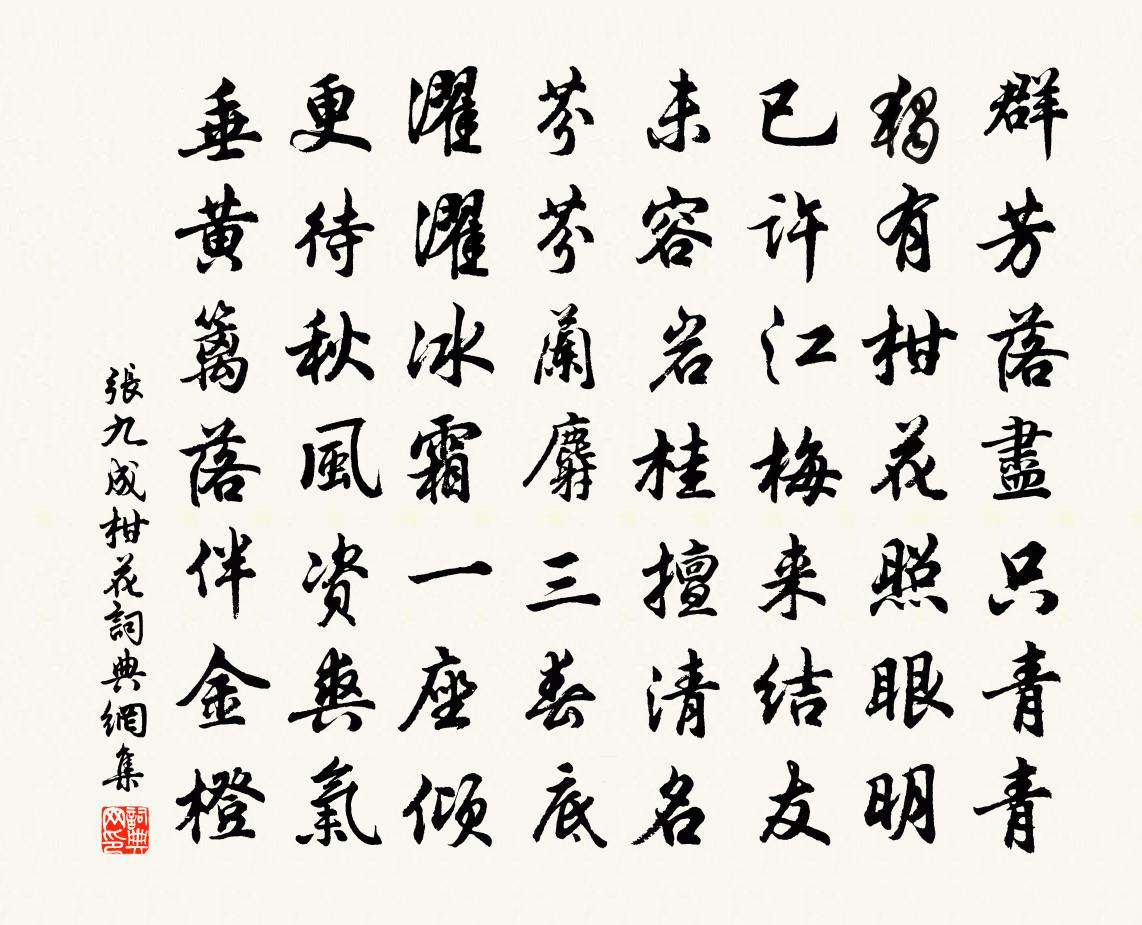 群芳落盡只青青
獨有柑花照眼明
已許江梅来结友
未容岩桂擅清名
芬芬蘭麝三春底
濯濯冰霜一座傾
更待秋風资爽氣
垂黄籬落伴金橙
張九成柑花詞典網集
詞典网印